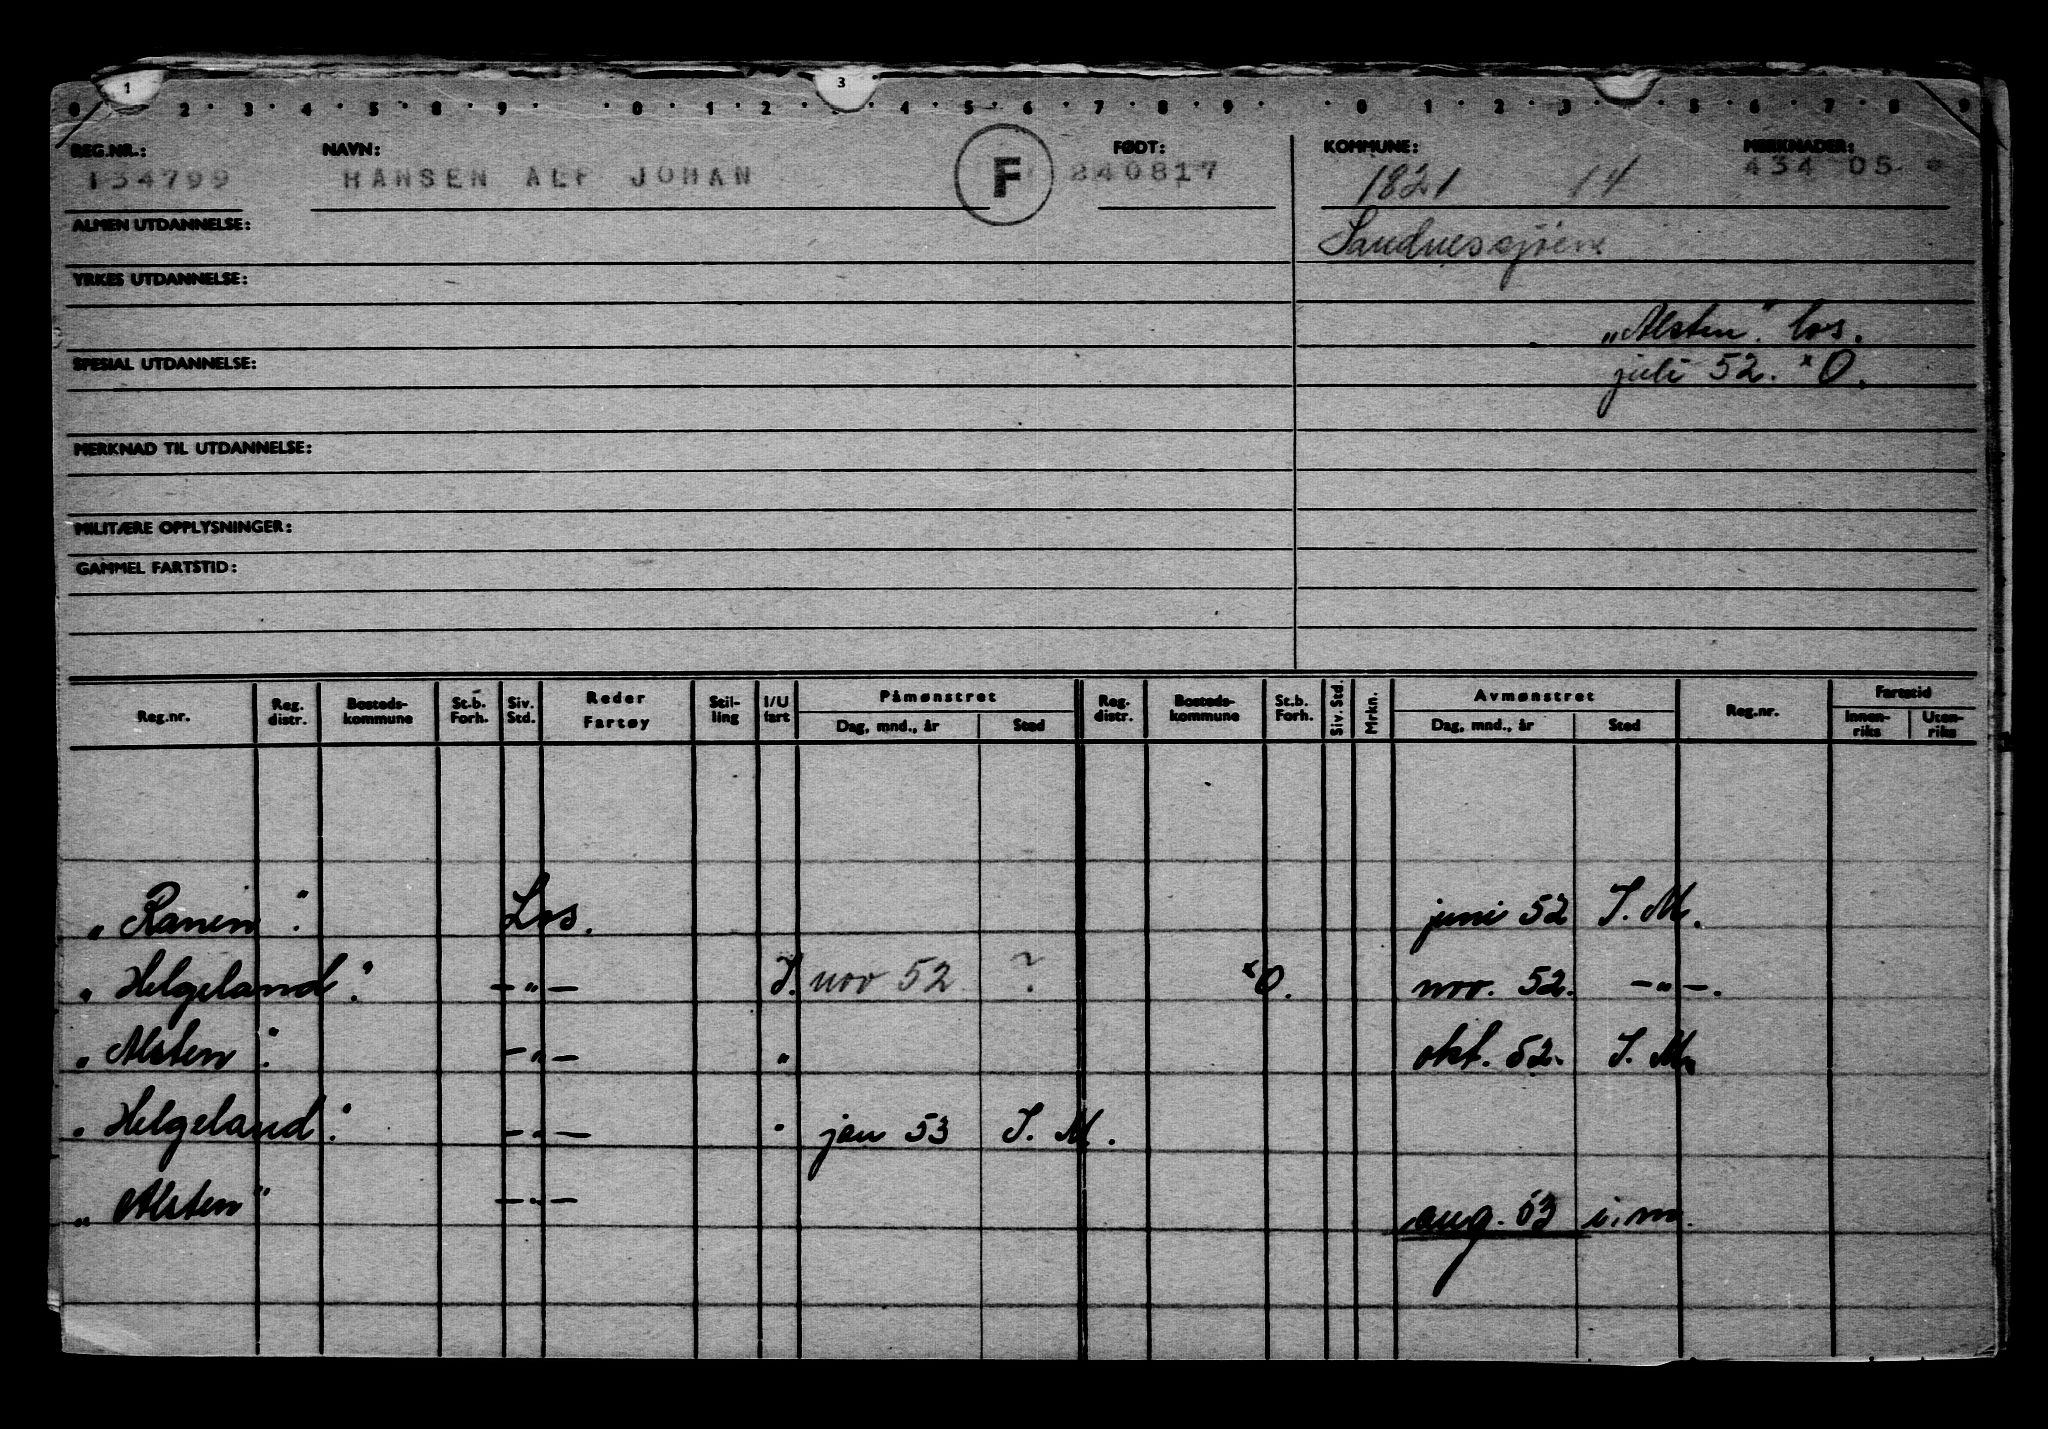 1 3
0 2 3 4 5 8 9 0 1 2 4 5 6 7 8 9 0 1 2 3 5 6 7 8 9
REG.NR.: NAVN: FØDT: KOMMUNE: MERKNADER:
134799 HANSEN ALF JOHAN F 240817 1821 14 434 05
ALMEN UTDANNELSE: Sandnessjøen
YRKES UTDANNELSE:
„Alsten" los.
SPESIAL UTDANNELSE: juli 52. *O.
MERKNAD TIL UTDANNELSE:
MILITÆRE OPPLYSNINGER:
GAMMEL FARTSTID:
Reg.nr. Reg. distr. Bosteds-kommune St.b. Forh. Siv. Std. Reder Fartøy Stil-ling I/U fart Påmønstret Dag, mnd., år Sted Reg. distr. Bosteds-kommune St.b. Forh. Siv. Std. Mrkn. Avmønstret Dag, mnd., år Sted Reg.nr. Fartstid Innen-riks Uten-riks
„Ranen". Los. juni 52 I. M.
„Helgeland". —"— I. nov 52 ? *O. nov. 52. —"—.
„Alsten". —"— " okt. 52. I. M.
„Helgeland". —"— " jan 53 I. M.
„Alsten" —"— aug. 53 i.m.